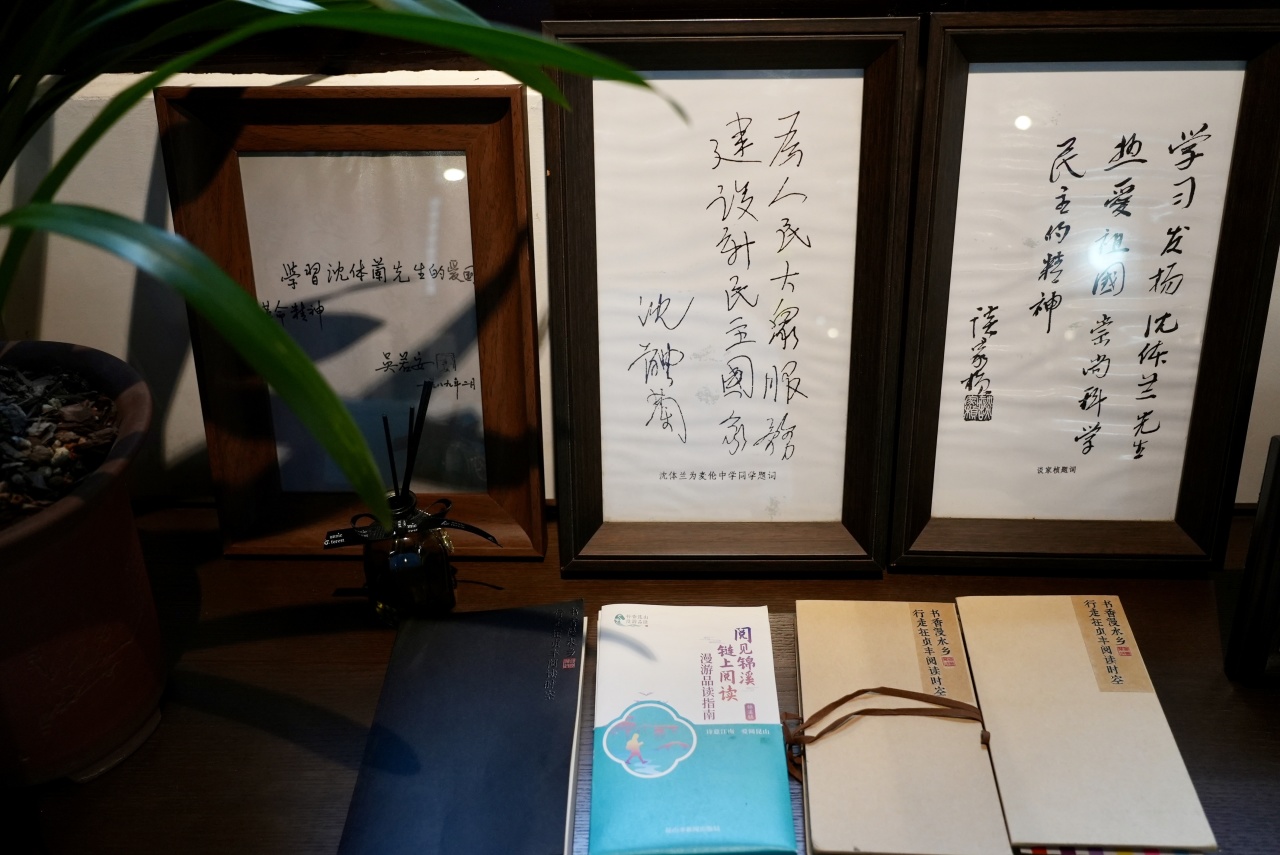 學習沈体蘭先生的爱国
革命精神
吳若安
一九八九年二月
为人民大众服務
建设新民主國家
沈體蘭
沈体兰为麦伦中学同学题词
学习发扬沈体兰先生
热爱祖國崇尚科学
民主的精神
谈家桢
谈家桢题词
书香漫水乡
行走在贞丰阅读时空
阅见锦溪
链上阅读
漫游品读指南
书香漫水乡
行走在贞丰阅读时空
书香漫水乡
行走在贞丰阅读时空